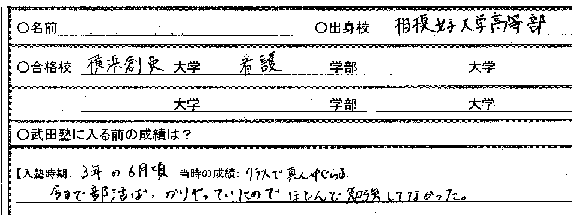 ○名前 ○出身校 相模女子大学高等部
○合格校 横浜創英 大学 看護 学部 大学
大学 学部 大学
○武田塾に入る前の成績は？
【入塾時期: 3年の6月頃 当時の成績: クラスで真ん中ぐらい
今まで部活ばっかりやっていたので ほとんど勉強してなかった。